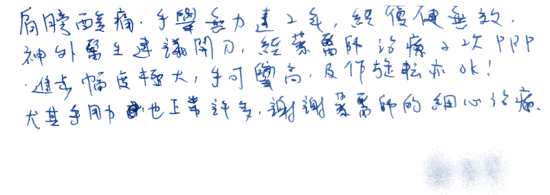 肩膀酸痛．手舉無力達2年，經復健無效，
神外醫生建議開刀，經葉醫師治療2次PRP
進步幅度極大，手可舉高，及作旋転亦OK！
尤其手用力也正常許多，謝謝葉醫師的細心治療．